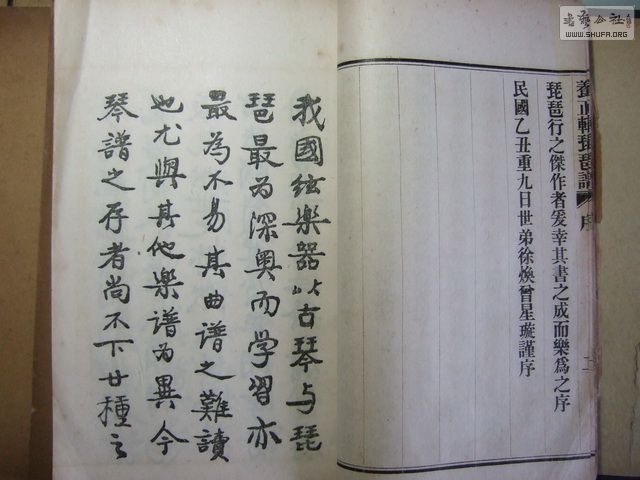 養正軒琵琶譜 序 二
琵琶行之傑作者爰幸其書之成而樂爲之序
民國乙丑重九日世弟徐煥曾星璇謹序
我國絃樂器以古琴与琵
琶最為深奥而学習亦
最為不易其曲譜之難讀
也尤與其他樂譜為異今
琴譜之存者尚不下廿種之
WWW.SHUFA.ORG